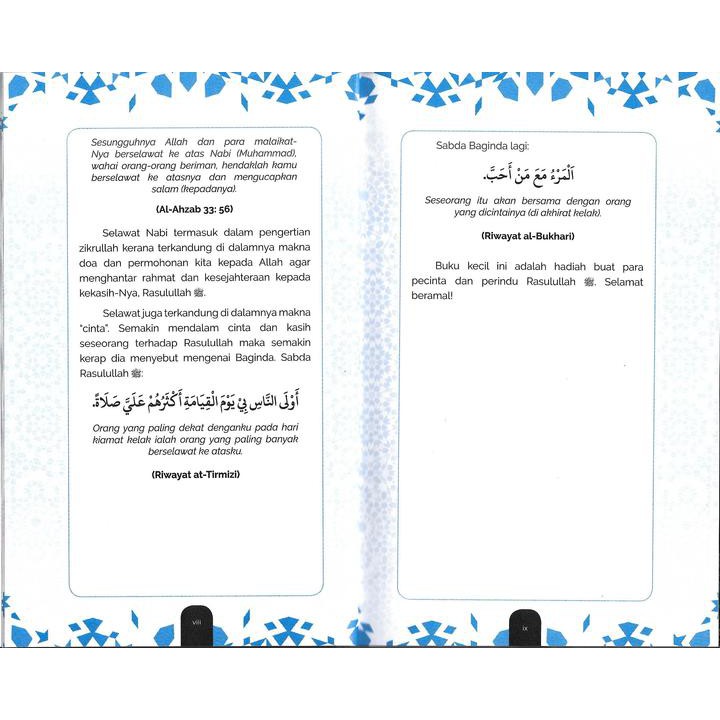 Sesungguhnya Allah dan para malaikat-
Nya berselawat ke atas Nabi (Muhammad),
wahai orang-orang beriman, hendaklah kamu
berselawat ke atasnya dan mengucapkan
salam (kepadanya).
(Al-Ahzab 33: 56)
Selawat Nabi termasuk dalam pengertian
zikrullah kerana terkandung di dalamnya makna
doa dan permohonan kita kepada Allah agar
menghantar rahmat dan kesejahteraan kepada
kekasih-Nya, Rasulullah ﷺ.
Selawat juga terkandung di dalamnya makna
"cinta". Semakin mendalam cinta dan kasih
seseorang terhadap Rasulullah maka semakin
kerap dia menyebut mengenai Baginda. Sabda
Rasulullah ﷺ:
أَوْلَى النَّاسِ بِيْ يَوْمَ الْقِيَامَةِ أَكْثَرُهُمْ عَلَيَّ صَلَاةً.
Orang yang paling dekat denganku pada hari
kiamat kelak ialah orang yang paling banyak
berselawat ke atasku.
(Riwayat at-Tirmizi)
viii
Sabda Baginda lagi:
اَلْمَرْءُ مَعَ مَنْ أَحَبَّ.
Seseorang itu akan bersama dengan orang
yang dicintainya (di akhirat kelak).
(Riwayat al-Bukhari)
Buku kecil ini adalah hadiah buat para
pecinta dan perindu Rasulullah ﷺ. Selamat
beramal!
ix